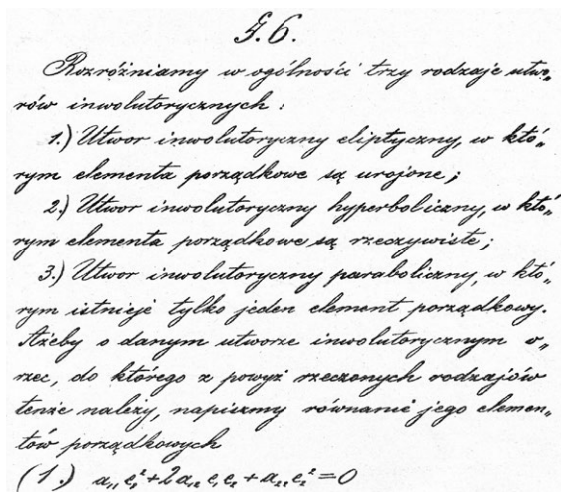 §. 6.
Rozróżniamy w ogólności trzy rodzaje utwo„
rów inwolutorycznych:
1.) Utwor inwolutoryczny eliptyczny, w któ„
rym elementa porządkowe są urojone;
2.) Utwor inwolutoryczny hyperboliczny, w któ„
rym elementa porządkowe są rzeczywiste;
3.) Utwor inwolutoryczny paraboliczny, w któ„
rym istnieje tylko jeden element porządkowy.
Ażeby o danym utworze inwolutorycznym o„
rzec, do którego z powyż rzeczonych rodzajów
tenże należy, napiszmy równanie jego elemen„
tów porządkowych
(1.) a₁₁e₁² + 2a₁₂e₁e₂ + a₂₂e₂² = 0